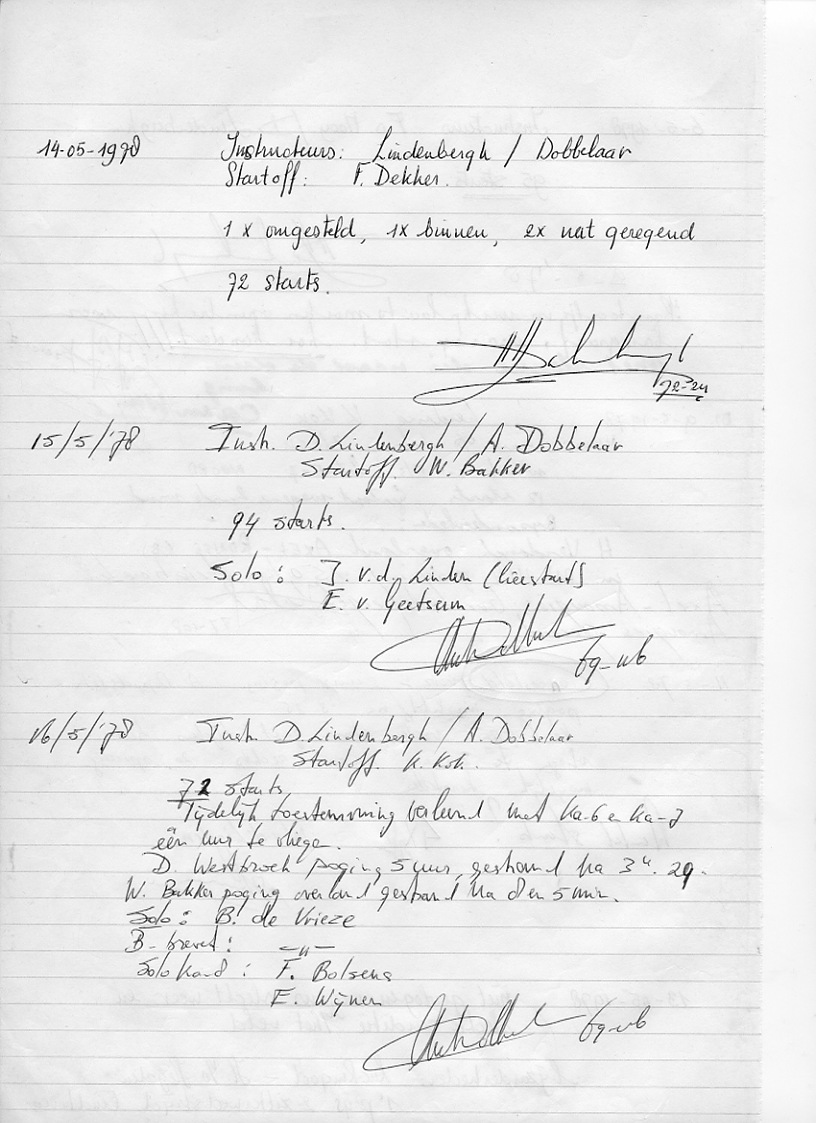 14-05-1978 Instructeurs: Lindenbergh / Dobbelaar
Startoff: F. Dekker.
1 x omgesteld, 1x binnen, 2x nat geregend
72 starts.
72-24
15/5/'78 Instr. D. Lindenbergh / A. Dobbelaar
Startoff. W. Bakker
94 starts.
Solo: J. v.d. Linden (lierstart)
E. v. Geetsum
69-ub
16/5/'78 Instr. D. Lindenbergh / A. Dobbelaar
Startoff. K. Kok.
72 starts
Tijdelijk toestemming verleend met Ka-6 en Ka-7
één uur te vliegen.
D. Westbroek poging 5 uur, gestrand na 3u. 29.
W. Bakker poging overland gestrand na 8 en 5 min.
Solo: B. de Vrieze
B-brevet: —"—
Solo kand: F. Bolsens
E. Wijnen
69-ub